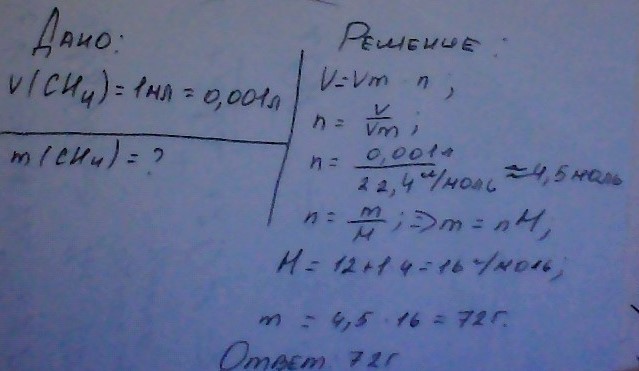 Дано:
V(CH4) = 1мл = 0,001л
m(CH4) = ?
Решение:
V = Vm · n;
n = V/Vm;
n = 0,001л/22,4 л/моль ≈ 4,5 моль
n = m/M; => m = nM,
M = 12+1·4 = 16 г/моль;
m = 4,5 · 16 = 72г.
Ответ 72г